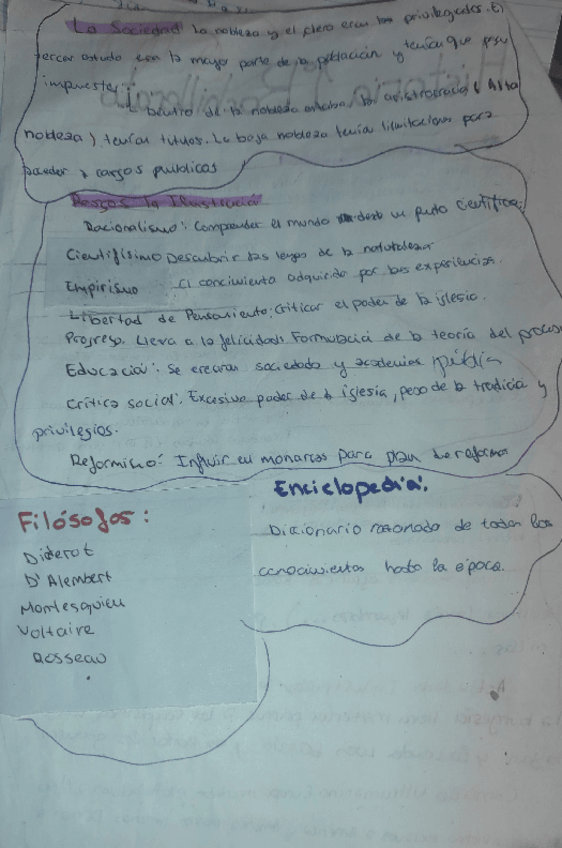 La Sociedad: la nobleza y el clero eran los privilegiados. El
tercer estado eran la mayor parte de la población y tenían que pagar
impuestos.
Dentro de la nobleza estaba la aristocracia (Alta
nobleza), tenían titulos. La baja nobleza tenía limitaciones para
acceder a cargos publicos
Rasgos la Ilustración
Racionalismo: Comprender el mundo desde un punto científico.
Cientifisimo Descubrir las leyes de la naturaleza
Empirismo El conocimiento adquirido por las experiencias.
Libertad de Pensamiento: Criticar el poder de la iglesia.
Progreso. Lleva a la felicidad. Formulación de la teoría del proceso
Educación: Se crearon sociedades y academias pública
Crítica social: Excesivo poder de la iglesia, peso de la tradición y
privilegios.
Reformismo: Influir en monarcas para plan de reforma
Enciclopedia:
Filósofos:
Diccionario razonado de todos los
Diderot
D'Alembert
conocimientos hasta la época.
Montesquieu
Voltaire
Rosseau